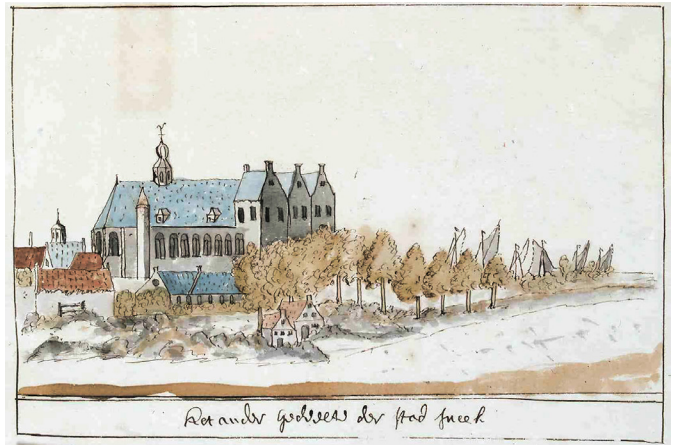 Het ander gedeelte der stad Sneek